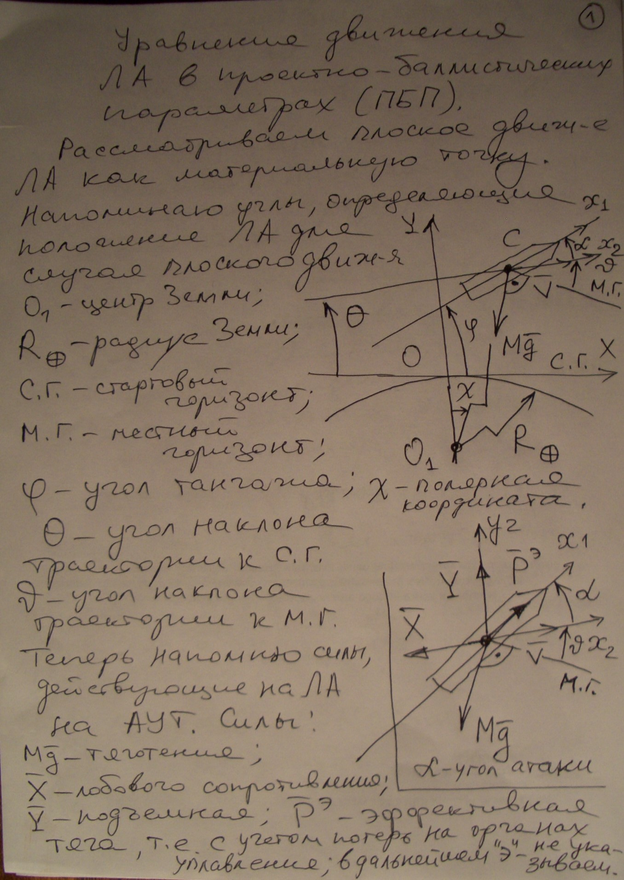 1
Уравнение движения
ЛА в проектно-баллистических
параметрах (ПБП).
Рассматриваем плоское движ-е
ЛА как материальную точку.
Напоминаю углы, определяющие
положение ЛА для
случая плоского движ-я
O₁ - центр Земли;
R⊕ - радиус Земли;
С.Г. - стартовый
горизонт;
М.Г. - местный
горизонт;
φ - угол тангажа; χ - полярная
координата.
Θ - угол наклона
траектории к С.Г.
ϑ - угол наклона
траектории к М.Г.
Теперь напомню силы,
действующие на ЛА
на АУТ. Силы:
Mg̅ - тяготения;
X̅ - лобового сопротивления;
Y̅ - подъемная; P̅ᵉ - эффективная
тяга, т.е. с учетом потерь на органах
управления; в дальнейшем "э" - не ука-
зываем.
Y
x₁
C
α
x₂
ϑ
V̅
М.Г.
Θ
φ
Mg̅
O
С.Г.
X
χ
O₁
R⊕
y₂
Y̅
P̅ᵉ
x₁
α
X̅
V̅
ϑ
x₂
М.Г.
Mg̅
α - угол атаки